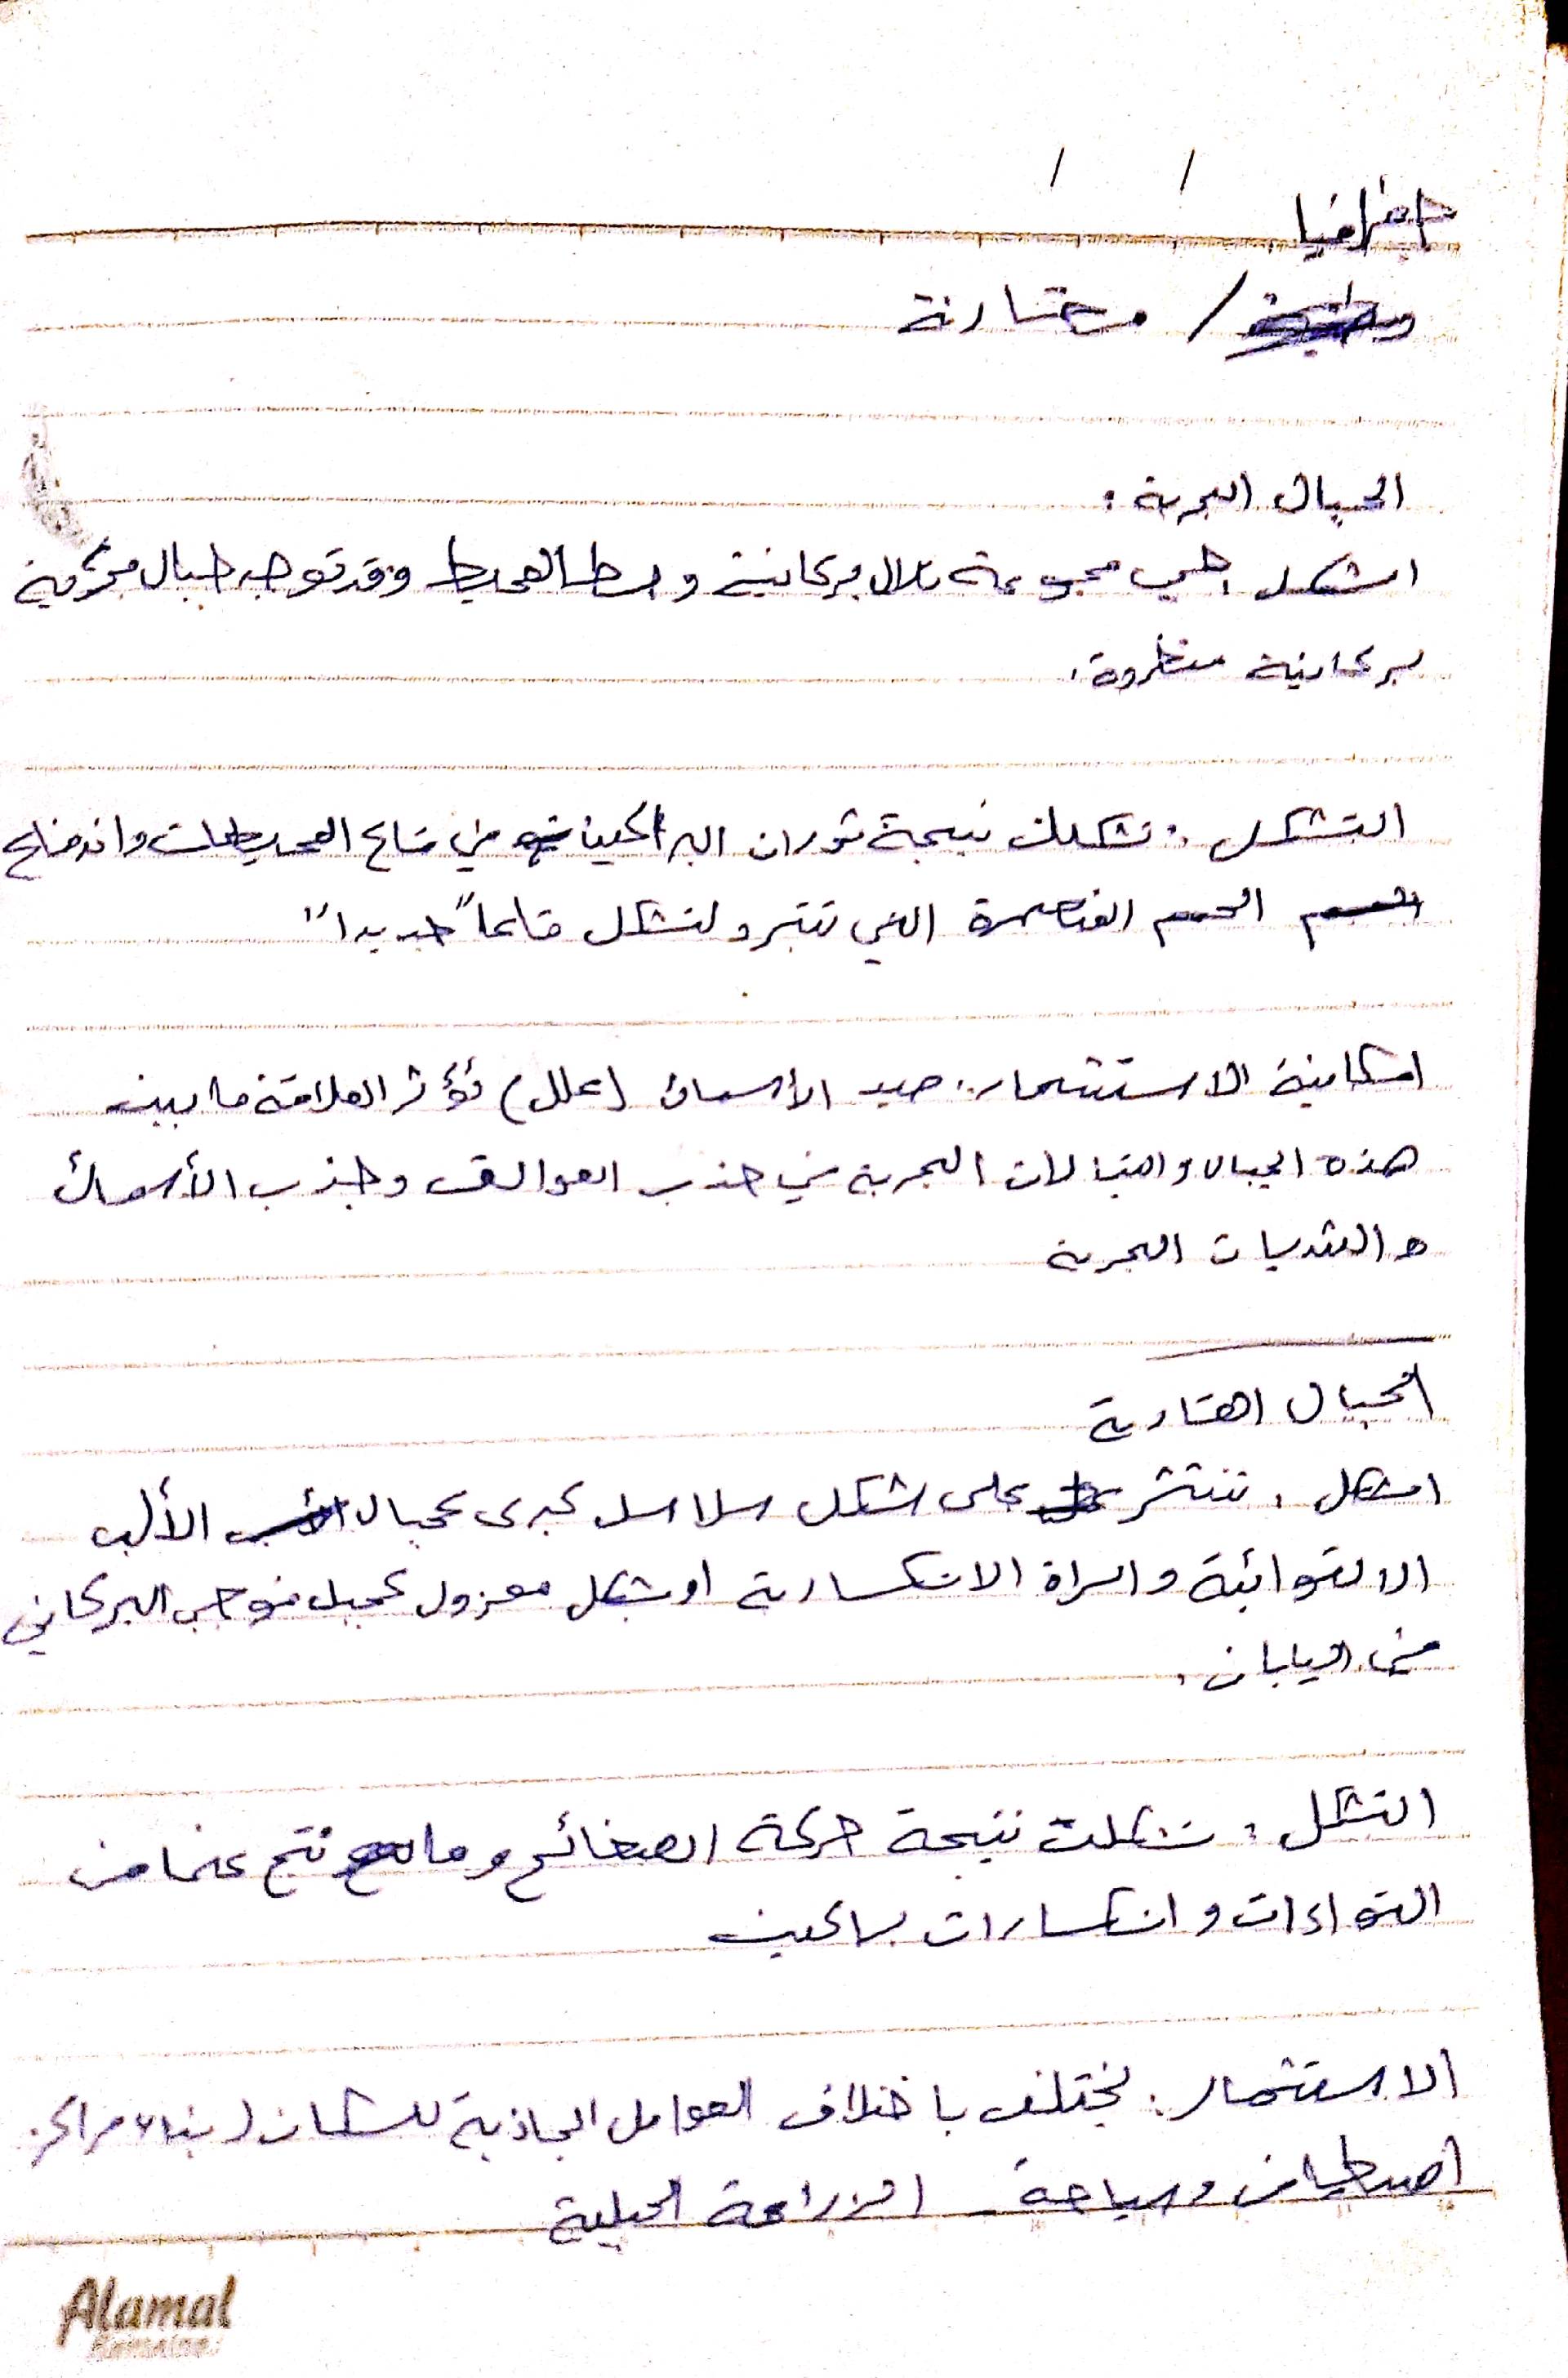 جغرافيا
/ مقارنة
الجبال البحرية :
الشكل : هي مجموعة تلال بركانية وسط المحيط وقد توجد جبال بحرية
بركانية منفردة .
التشكل : تشكلت نتيجة ثوران البراكين في قاع المحيطات واندفاع
الحمم المنصهرة التي تتبرد لتشكل قاعاً جديداً
امكانية الاستثمار : صيد الأسماك (علل) تؤثر العلاقة ما بين
هذه الجبال والتيارات البحرية في جذب العوالق وجذب الأسماك
و الثدييات البحرية
الجبال القارية
الشكل : تنتشر على شكل سلاسل كبرى كجبال الألب
الالتوائية والسراة الانكسارية او بشكل معزول كجبل فوجي البركاني
في اليابان .
التشكل : تشكلت نتيجة حركة الصفائح وما نتج عنها من
التواءات و انكسارات براكين
الاستثمار : يختلف باختلاف العوامل الجاذبة للسكان ( بناء مراكز
اصطياف وسياحة الزراعة الجبلية
Alamal